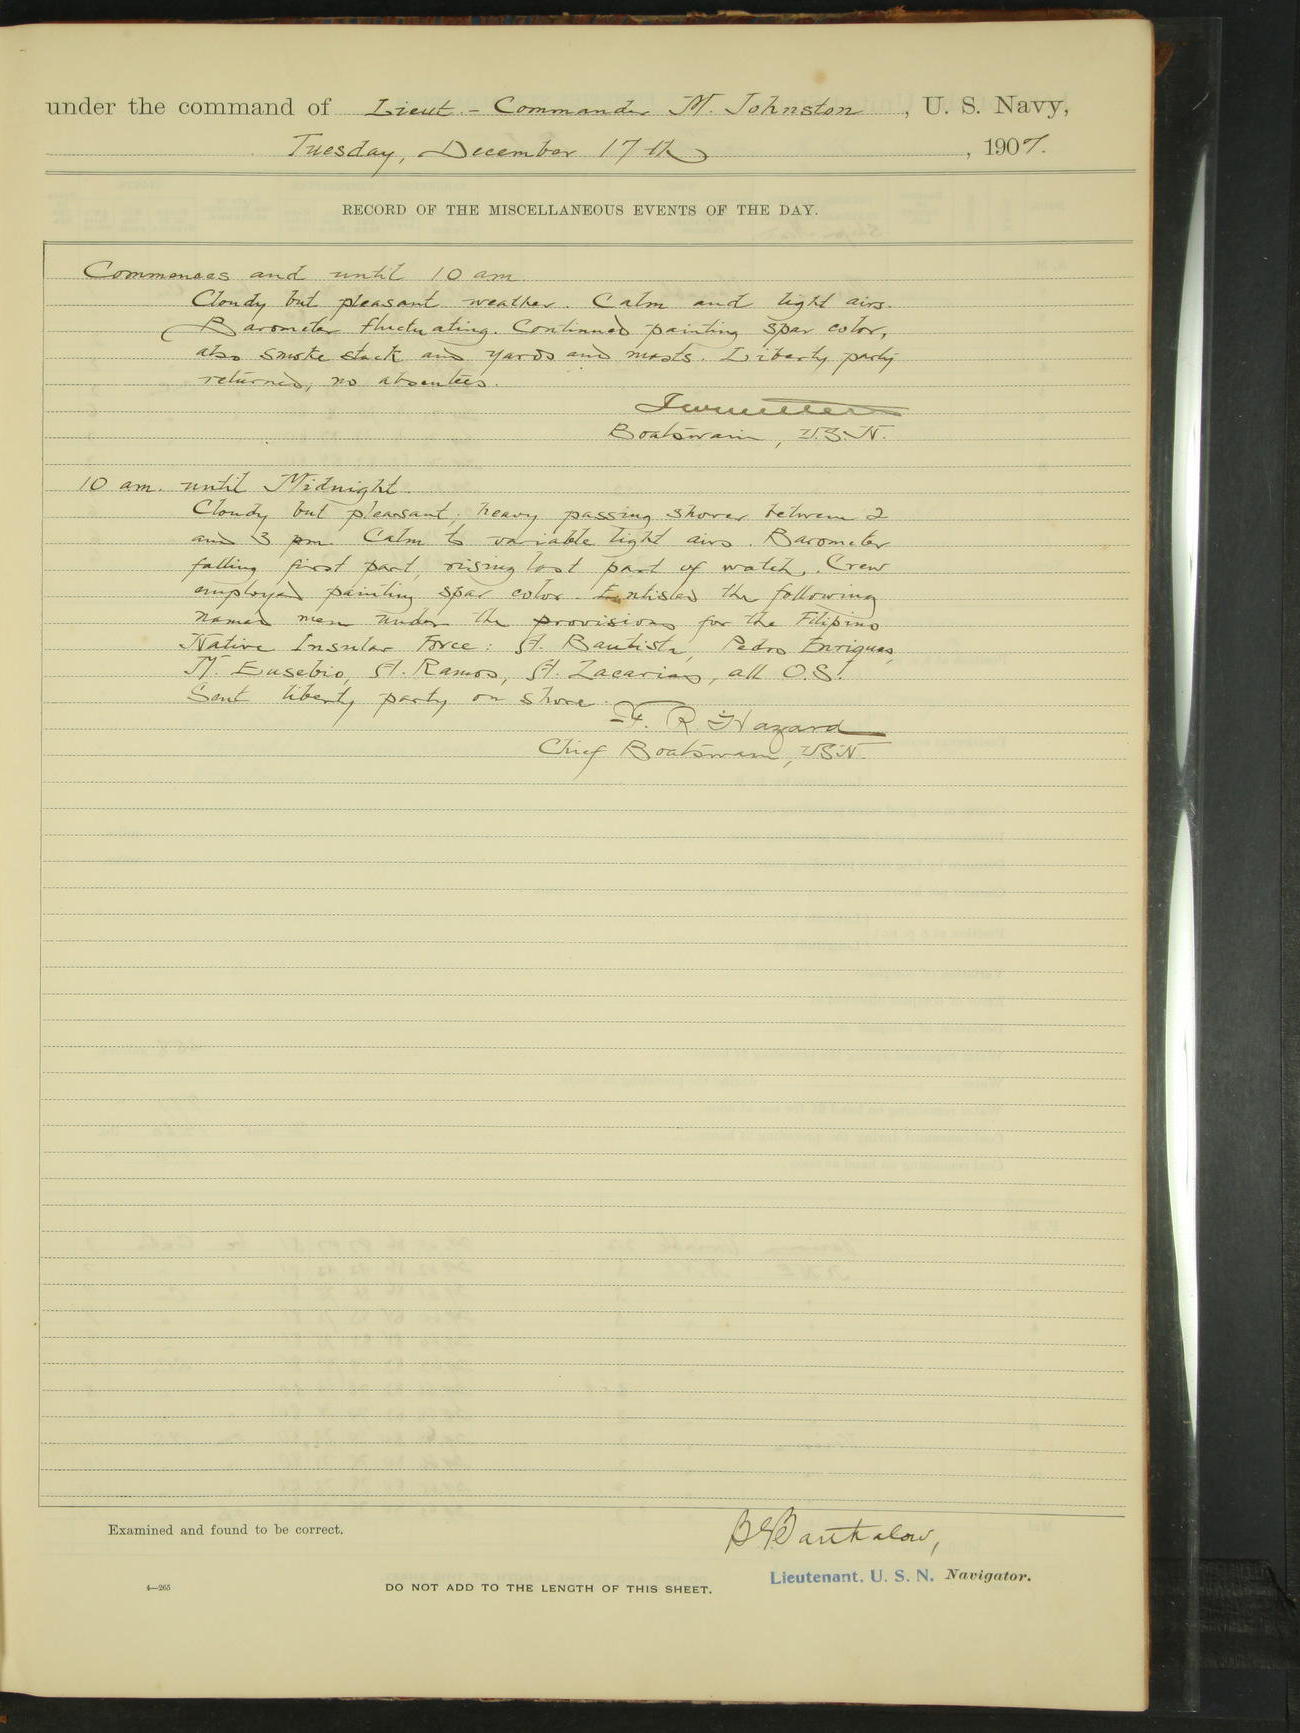 under the command of Lieut.-Commander M. Johnston, U. S. Navy,
Tuesday, December 17th, 1907.
RECORD OF THE MISCELLANEOUS EVENTS OF THE DAY.
Commences and until 10 am.
Cloudy but pleasant weather. Calm and light airs.
Barometer fluctuating. Continued painting spar color,
also smoke stack and yards and masts. Liberty party
returned, no absentees.
Boatswain, U.S.N.
10 am. until Midnight.
Cloudy but pleasant, heavy passing shower between 2
and 3 pm. Calm to variable light airs. Barometer
falling first part, rising last part of watch. Crew
employed painting spar color. Enlisted the following
named men under the provisions for the Filipino
Native Insular Force: A. Bautista, Pedro Enriques,
M. Eusebio, A. Ramos, A. Zacarias, all O.S.
Sent liberty party on shore.
F. R. Hazard
Chief Boatswain, USN.
Examined and found to be correct.
Lieutenant, U. S. N. Navigator.
4—265
DO NOT ADD TO THE LENGTH OF THIS SHEET.